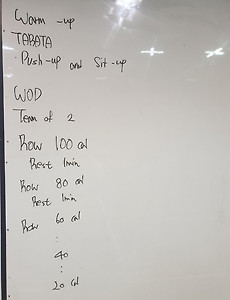 Warm-up
TABATA
· Push-up and Sit-up
WOD
Team of 2
· Row 100 cal
Rest 1min
Row 80 cal
Rest 1min
· Row 60 cal
:
40
:
20 cal